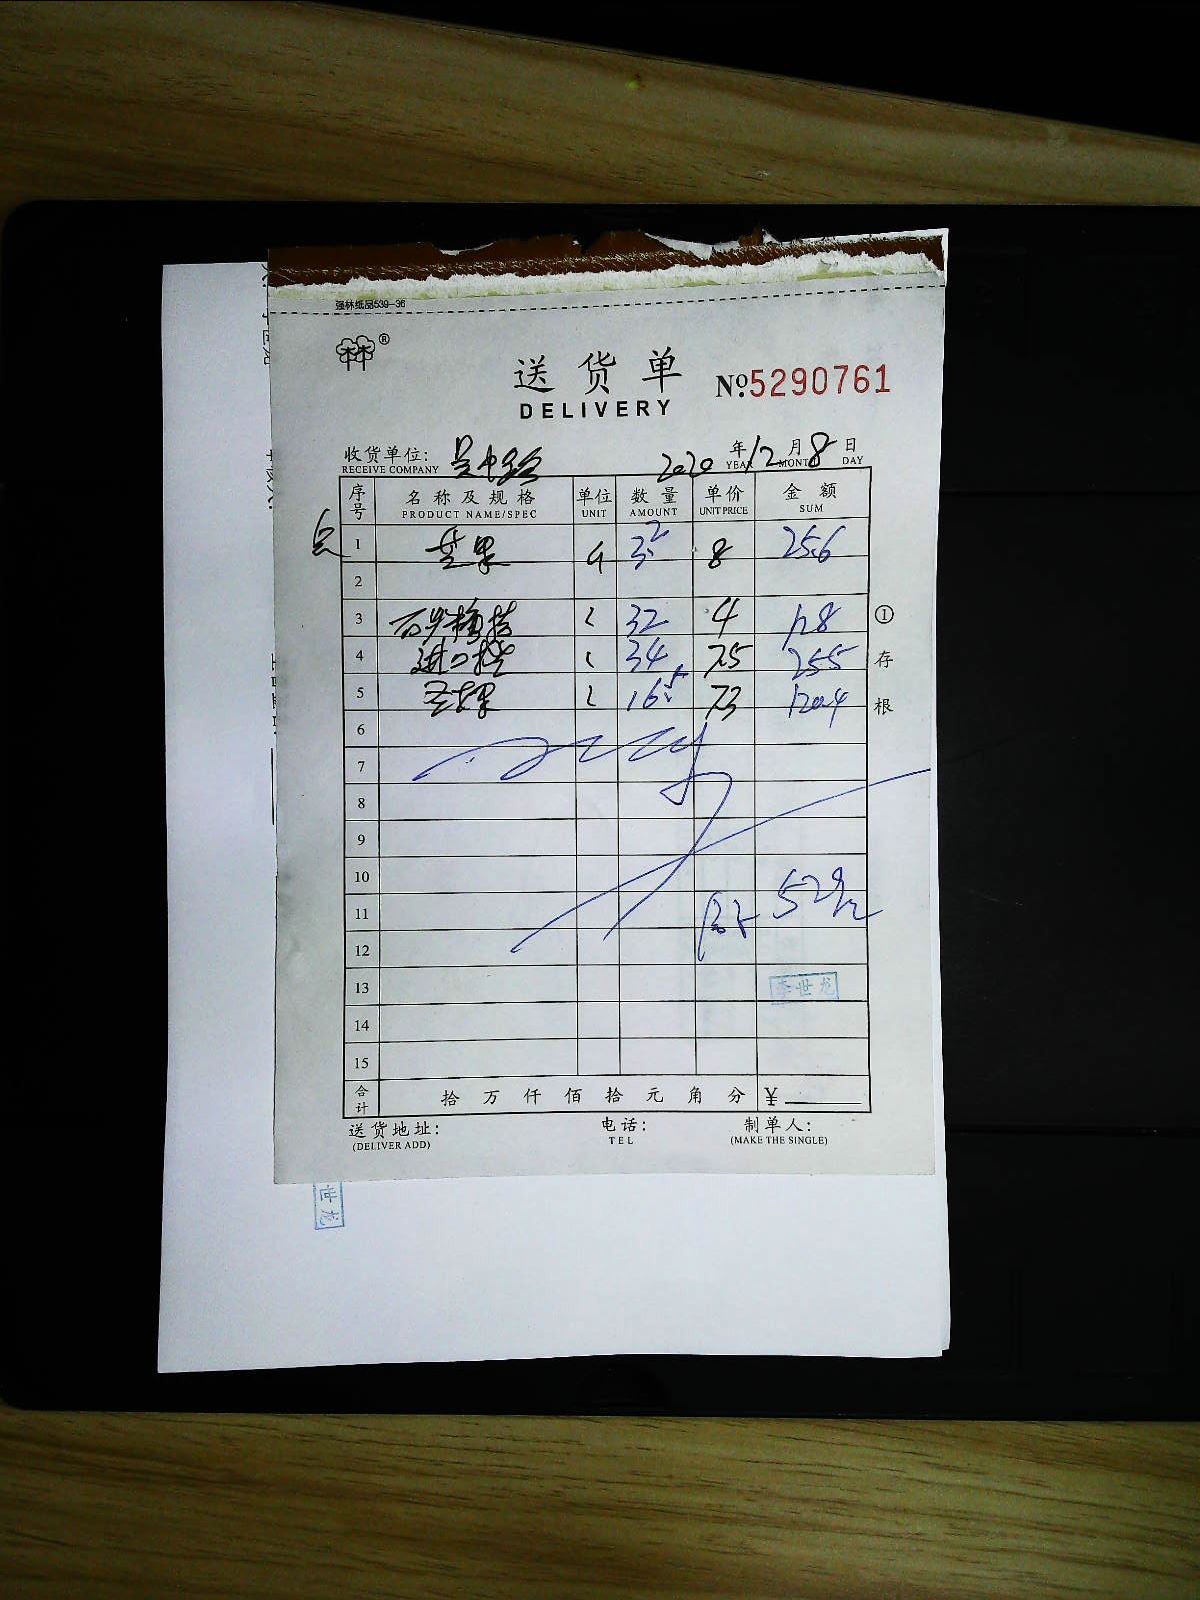 强林纸品539-36
林林®
送货单 №5290761
DELIVERY
收货单位: 吴中路 2020年12月8日
RECEIVE COMPANY YEAR MONTH DAY
序号 名称及规格 单位 数量 单价 金额
PRODUCT NAME/SPEC UNIT AMOUNT UNIT PRICE SUM
1 苹果 斤 3.2 8 25.6
2
3 32 4 128
4 34 7.5 255
5 圣女果 16.5 7.3 120.4
6
7
8
9
10
11 529
12
13 李世龙
14
15
①存根
合计 拾万仟佰拾元角分 ¥
送货地址: 电话: 制单人:
(DELIVER ADD) TEL (MAKE THE SINGLE)
世龙